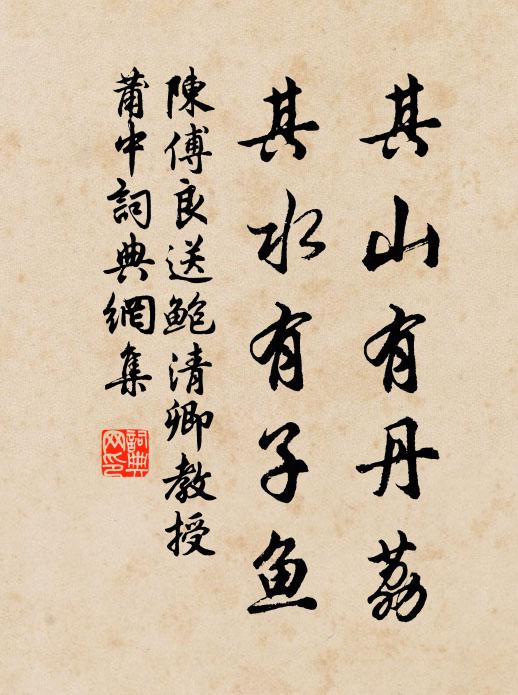 其山有丹荔
其水有子鱼
陳傅良送鲍清卿教授
莆中詞典網集
詞典网印